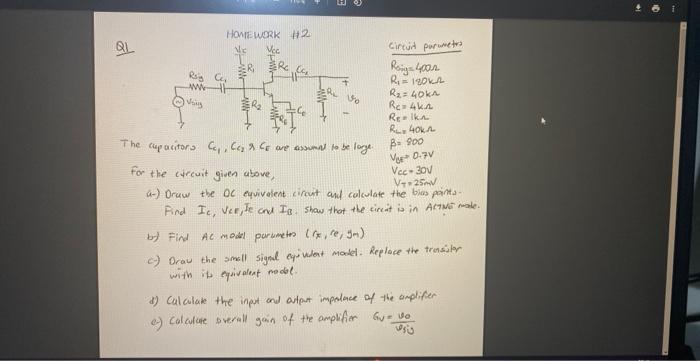 HOMEWORK #2
Q1
Circuit parameters
Vcc Vcc
Rsig Cc1 R1 Rc Cc2
Rsig = 400Ω
R1 = 120kΩ
R2 = 40kΩ
Rc = 4kΩ
RE = 1kΩ
RL = 40kΩ
β = 800
VBE = 0.7V
Vcc = 30V
VT = 25mV
Vsig R2 RE CE RL vo
+
-
The capacitors Cc1, Cc2 & CE are assumed to be large.
For the circuit given above,
a-) Draw the DC equivalent circuit and calculate the bias points.
Find Ic, VCE, IE and IB. Show that the circuit is in ACTIVE mode.
b) Find AC model parameters (rπ, re, gm)
c-) Draw the small signal equivalent model. Replace the transistor
with its equivalent model.
d) Calculate the input and output impedance of the amplifier
e-) Calculate overall gain of the amplifier Gv = vo / vsig